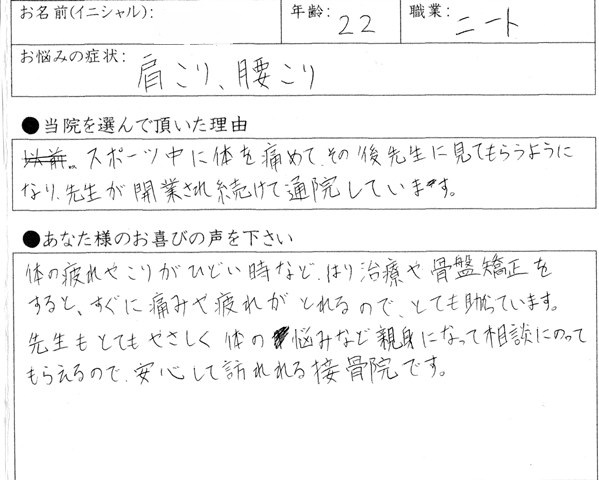 お名前(イニシャル): 年齢: 22 職業: ニート
お悩みの症状: 肩こり、腰こり
●当院を選んで頂いた理由
以前 スポーツ中に体を痛めて、その後先生に見てもらうように
なり、先生が開業され続けて通院しています。
●あなた様のお喜びの声を下さい
体の疲れやこりがひどい時など、はり治療や骨盤矯正を
すると、すぐに痛みや疲れがとれるので、とても助っています。
先生もとてもやさしく体の悩みなど親身になって相談にのって
もらえるので、安心して訪れれる接骨院です。